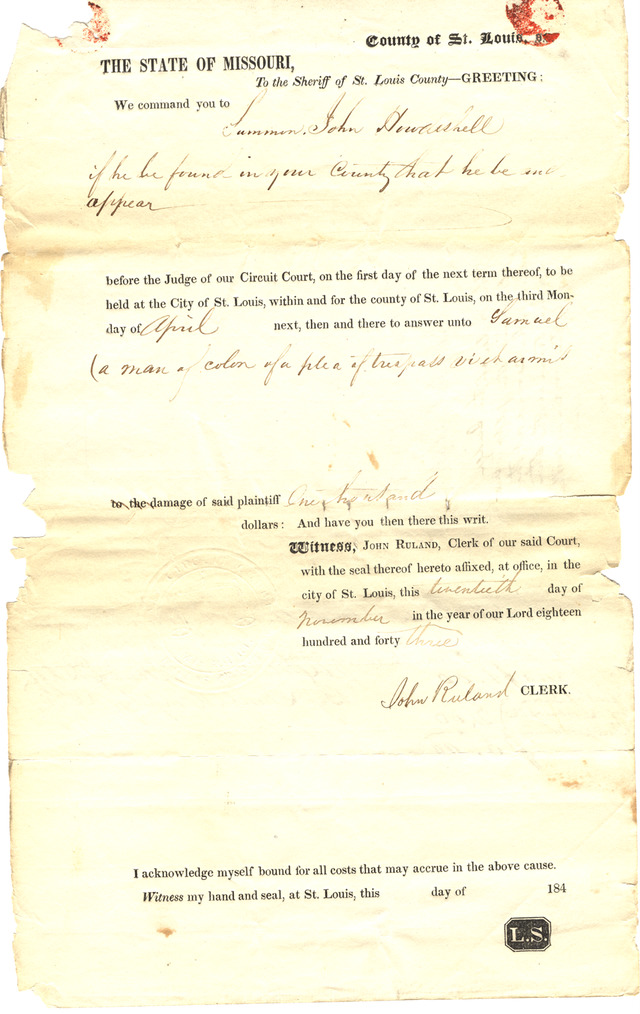 County of St. Louis, ss.
THE STATE OF MISSOURI,
To the Sheriff of St. Louis County—GREETING:
We command you to
Summon John Howdeshell
if he be found in your County that he be and
appear
before the Judge of our Circuit Court, on the first day of the next term thereof, to be
held at the City of St. Louis, within and for the county of St. Louis, on the third Mon-
day of April next, then and there to answer unto Samuel
(a man of color of a plea of trespass vi et armis
to the damage of said plaintiff One thousand
dollars: And have you then there this writ.
Witness, JOHN RULAND, Clerk of our said Court,
with the seal thereof hereto affixed, at office, in the
city of St. Louis, this twentieth day of
November in the year of our Lord eighteen
hundred and forty three
John Ruland CLERK.
I acknowledge myself bound for all costs that may accrue in the above cause.
Witness my hand and seal, at St. Louis, this day of 184
L.S.